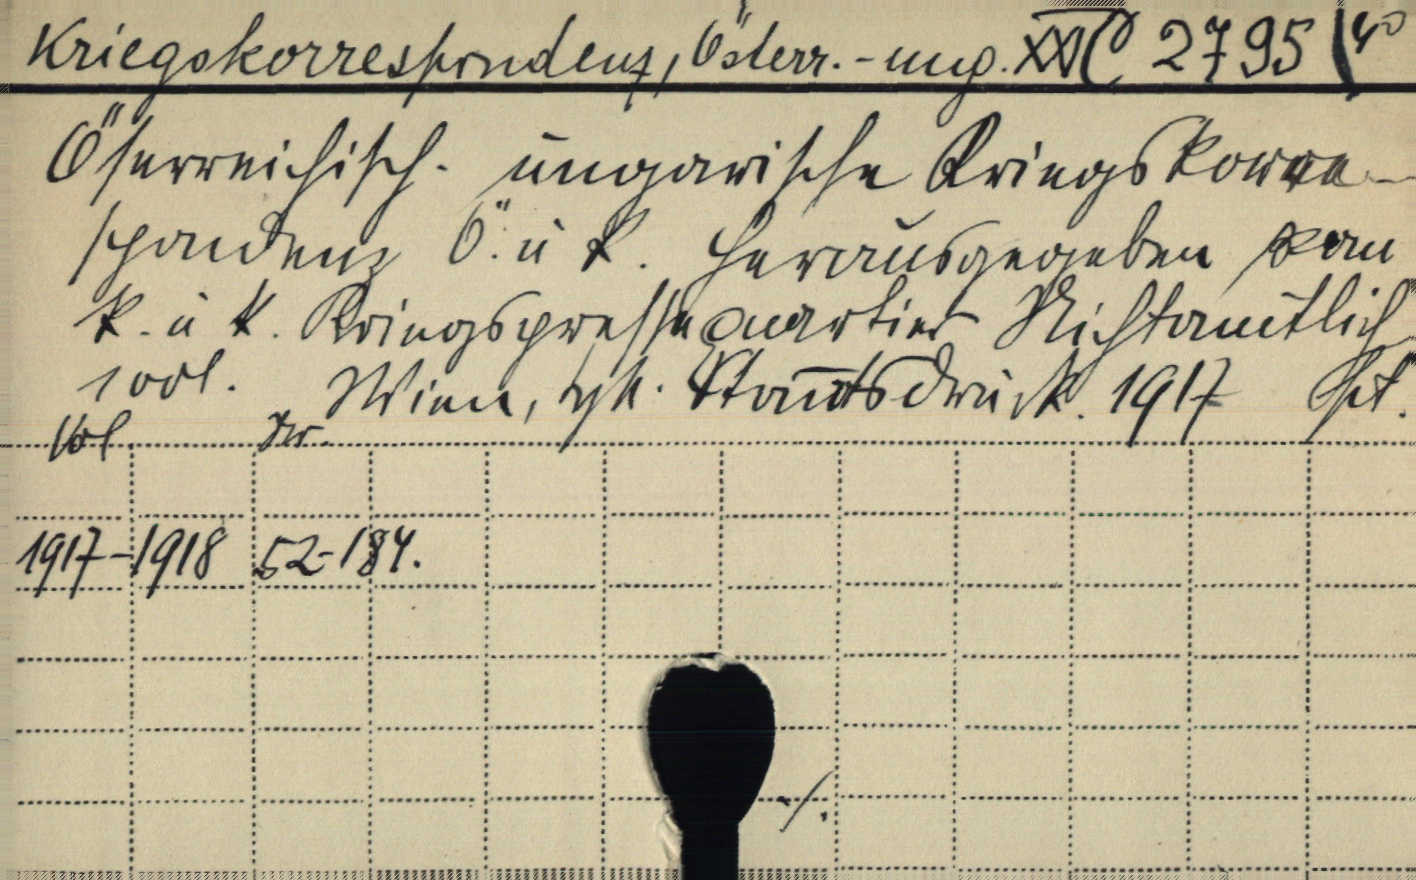 Kriegskorrespondenz, Österr.-ung. XXI C 2795 (4°
Österreichisch-ungarische Kriegskorre-
spondenz Ö. u K. Herausgegeben vom
k. u k. Kriegspressequartier Nichtamtlich
Wien, Staatsdruck. 1917
Vol Nr.
1917-1918 52-184.
./.